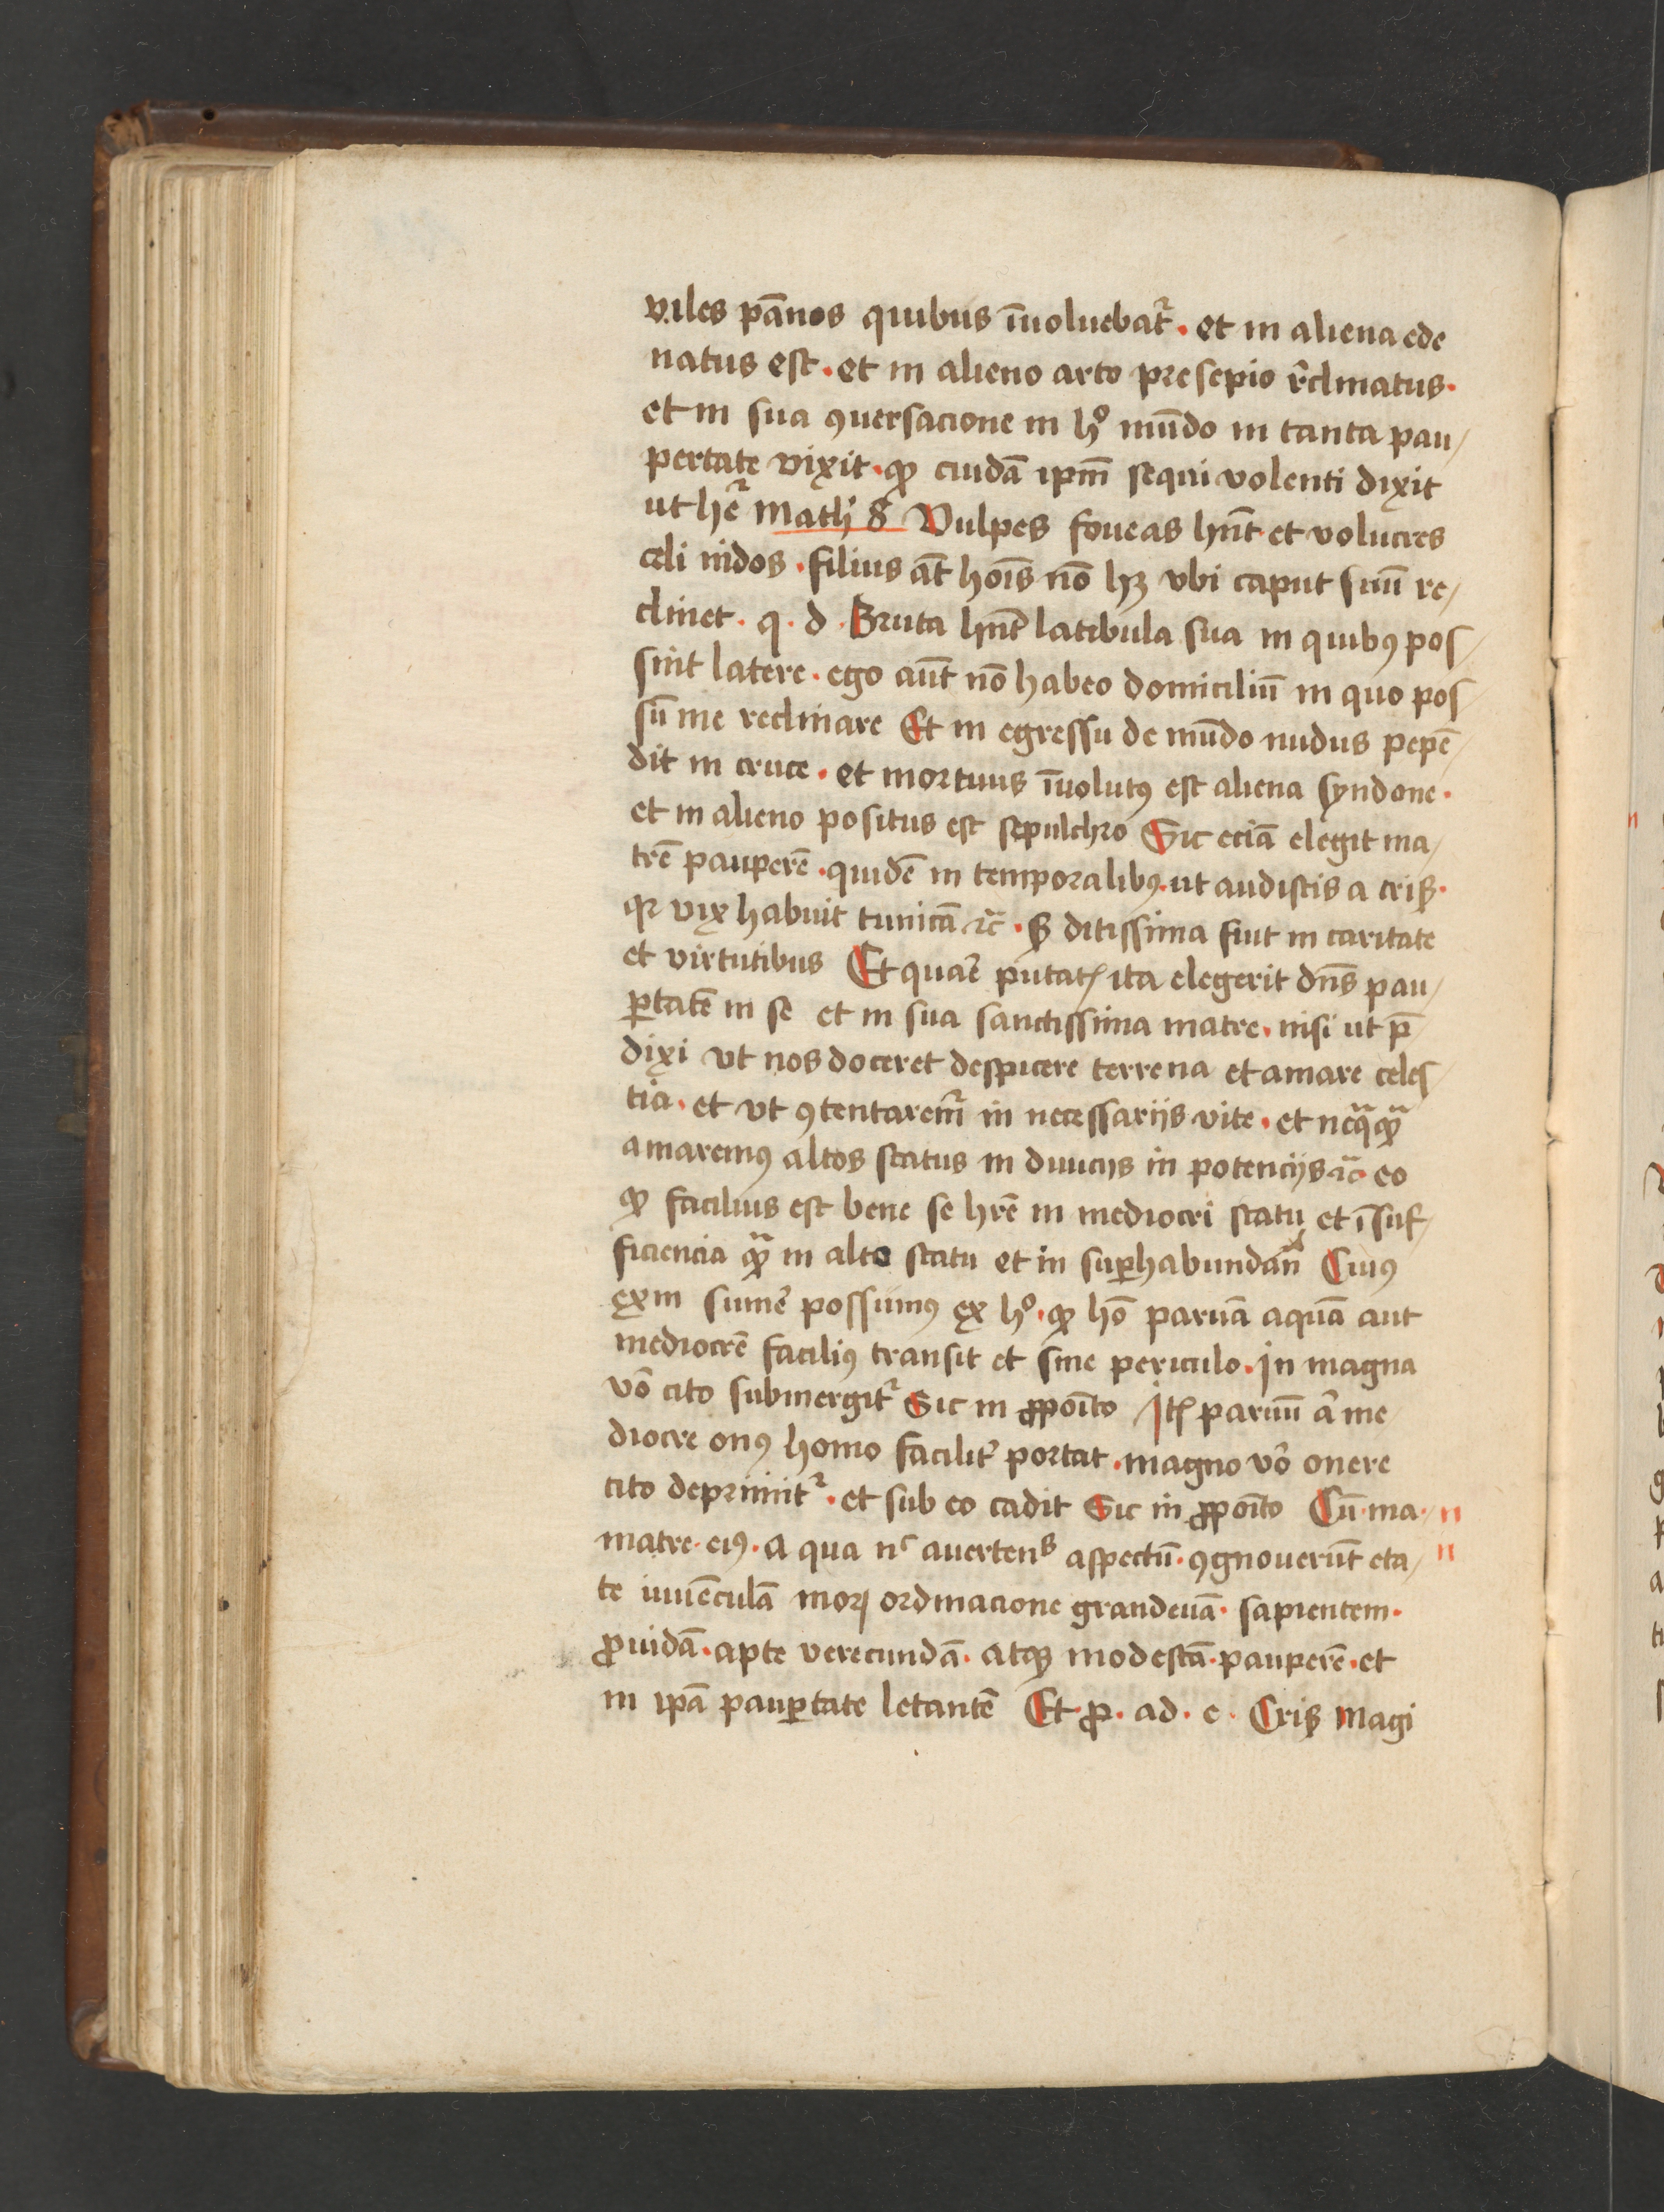 viles pānos quibus īuoluebat᷑ · et in aliena ede
natus est · et in alieno arto presepio r̄clinatus ·
et in sua ꝯuersacione in hͦ mūdo in tanta pau/
pertate vixit · ꝙ cuidā ipm̄ sequi volenti dixit
ut het᷑ Math 8 Vulpes foueas hn̄t et volucres
celi nidos · filius āt hoīs nō hꝫ vbi caput suū re/
clinet · q · d · Bruta hn̄t latibula sua in quibꝰ pos/
sint latere · ego aūt nō habeo domiciliū in quo pos/
sū me reclinare Et in egressu de mūdo nudus pepē/
dit in cruce · et mortuus īuolutꝰ est aliena syndone ·
et in alieno positus est sepulchro Sic eciā elegit ma/
trē pauperē · quidē in temporalibꝰ · ut audistis a crisꝭ ·
qꝛ vix habuit tunicā ⁊c̄ · Sꝫ ditissima fuit in caritate
et virtutibus Et quar̄ putatꝭ ita elegerit dn̄s pau/
ꝑtatē in se et in sua sanctissima matre · nisi ut p̄
dixi vt nos doceret despicere terrena et amare celes/
tia · et vt ꝯtentarem᷑ in necessariis vite · et neqᷓꝙᷓ
amaremꝰ altos status in diuicijs in potencijs ⁊c̄ · eo
ꝙ facilius est bene se hr̄e in mediocri statu et ī suf/
ficiencia ꝙᷓ in alto statu et in suꝑhabundan̄ Cuiꝰ
exm sumē possumꝰ ex hͦ · ꝙ hō paruā aquā aut
mediocrē faciliꝰ transit et sine periculo · in magna
vō cito submergit᷑ Sic in ꝓpoīto Itꝭ paruū a᷑ me
diocre onꝰ homo facilit᷑ portat · magno vō onere
cito deprimit᷑ · et sub eo cadit Sic in ꝓpoīto Cū · ma · n
matre · eiꝰ · a qua nͨ auertens aspectū · ꝯgnouerūt eta/ n
te iuuēculā moꝝ ordinacione grandeuā · sapientem ·
ꝓuidā · apte verecundā · atqꝫ modestā · pauperē · et
in ipā pauꝑtate letantē Et · ꝓ · ad · e · Crisꝭ Magi